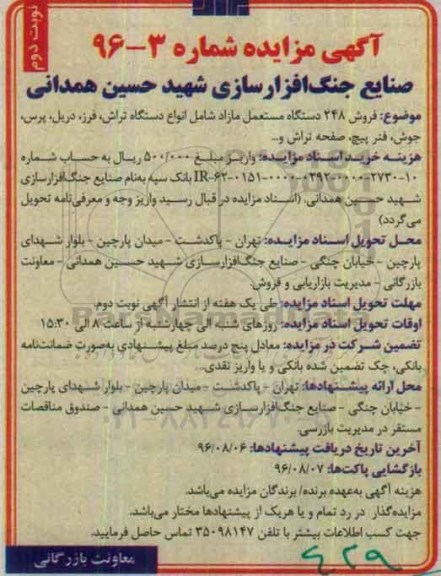 نوبت دوم
آگهی مزایده شماره ۳-۹۶
صنایع جنگ‌افزارسازی شهید حسین همدانی
موضوع: فروش ۲۴۸ دستگاه مستعمل مازاد شامل انواع دستگاه تراش، فرز، دریل، پرس،
جوش، فنر پیچ، صفحه تراش و...
هزینه خرید اسناد مزایده: واریز مبلغ ۵۰۰/۰۰۰ ریال به حساب شماره
IR-۶۲-۰۱۵۱-۰۰۰۰-۰۳۹۲-۰۰۰۰-۲۷۳۰-۱۰ بانک سپه به‌نام صنایع جنگ‌افزارسازی
شهید حسین همدانی. (اسناد مزایده در قبال رسید واریز وجه و معرفی‌نامه تحویل
می‌گردد)
محل تحویل اسناد مزایده: تهران - پاکدشت - میدان پارچین - بلوار شهدای
پارچین - خیابان چنگی - صنایع جنگ‌افزارسازی شهید حسین همدانی - معاونت
بازرگانی - مدیریت بازاریابی و فروش.
مهلت تحویل اسناد مزایده: طی یک هفته از انتشار آگهی نوبت دوم.
اوقات تحویل اسناد مزایده: روزهای شنبه الی چهارشنبه از ساعت ۸ الی ۱۵:۳۰
تضمین شرکت در مزایده: معادل پنج درصد مبلغ پیشنهادی به‌صورت ضمانت‌نامه
بانکی، چک تضمین شده بانکی و یا واریز نقدی..
محل ارائه پیشنهادها: تهران - پاکدشت - میدان پارچین - بلوار شهدای پارچین
- خیابان چنگی - صنایع جنگ‌افزارسازی شهید حسین همدانی - صندوق مناقصات
مستقر در مدیریت بازرسی.
آخرین تاریخ دریافت پیشنهادها: ۹۶/۰۸/۰۶
بازگشایی پاکت‌ها: ۹۶/۰۸/۰۷
هزینه آگهی به‌عهده برنده/ برندگان مزایده می‌باشد.
مزایده‌گذار در رد تمام و یا هریک از پیشنهادها مختار می‌باشد.
جهت کسب اطلاعات بیشتر با تلفن ۳۵۰۹۸۱۴۷ تماس حاصل فرمایید.
معاونت بازرگانی
۴۲۹